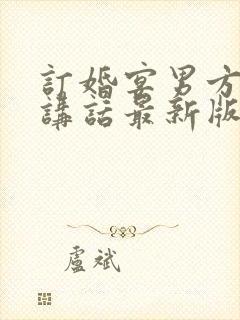 訂婚宴男方
講話最新版
盧斌